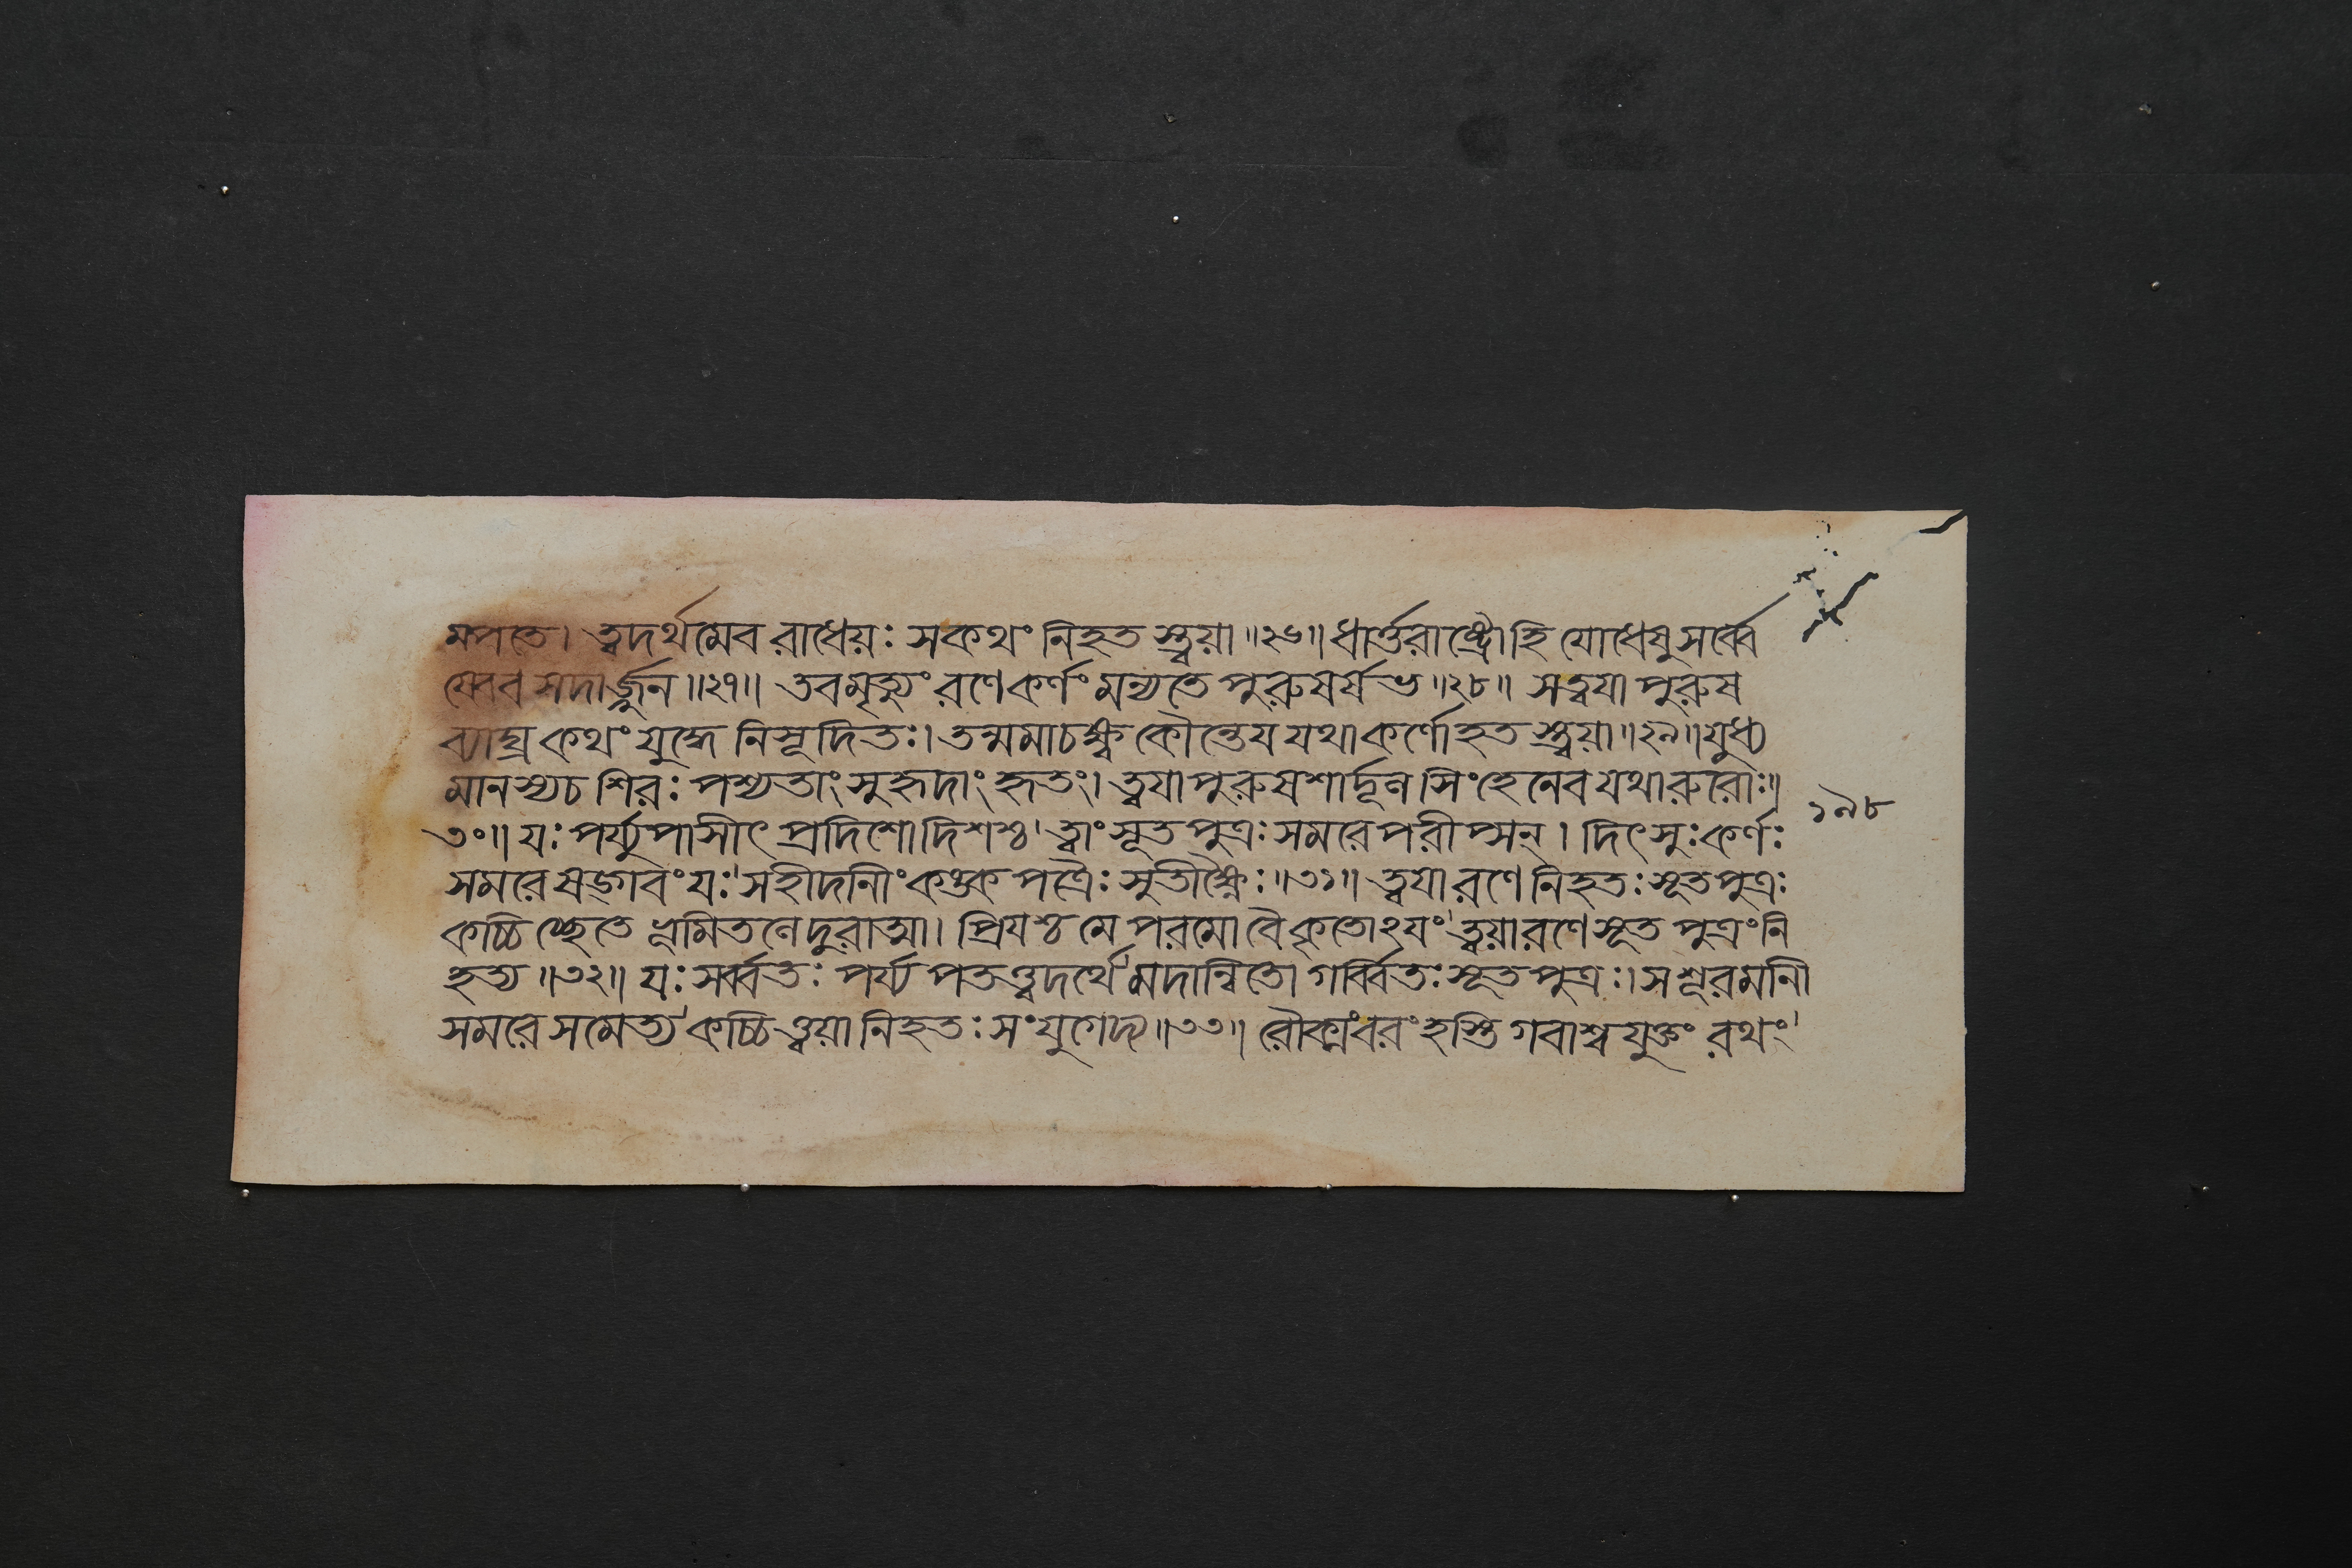 মপতে। ত্বদর্থমেব রাধেয়ঃ সকথং নিহতস্ত্বয়া॥২৬॥ ধার্ত্তরাষ্ট্রৌহি যোধেষু সর্ব্বে
ষ্বেব সদার্জ্জুন॥২৭॥ তবমৃত্যুং রণেকর্ণং মন্যতে পুরুষর্ষভ॥২৮॥ সত্বয়া পুরুষ
ব্যাঘ্র কথং যুদ্ধে নিসূদিতঃ। তন্মমাচক্ষ্ব কৌন্তেয় যথাকর্ণোহতস্ত্বয়া॥২৯॥ যুধ্য
মানস্যচ শিরঃ পশ্যতাং সুহৃদাং হৃতং। ত্বয়াপুরুষশার্দ্দূল সিংহেনেব যথারুরোঃ॥
৩০॥ যঃ পর্য্যুপাসীৎ প্রদিশোদিশশ্চ' ত্বাং সূতপুত্রঃ সমরেপরীপ্সন্। দিৎসুঃকর্ণঃ
সমরে ষড়্গবং যঃ' সহীদানীং কঙ্কপত্রৈঃ সুতীক্ষ্ণৈঃ॥৩১॥ ত্বয়া রণে নিহতঃ সূতপুত্রঃ
কচ্চিচ্ছেতে ভূমিতলে দুরাত্মা। প্রিয়শ্চ মে পরমো বৈ কৃতোঽয়ং' ত্বয়ারণে সূতপুত্রংনি
হত্য॥৩২॥ যঃ সর্ব্বতঃ পর্য্যপতত্ত্বদর্থে' মদান্বিতো গর্ব্বিতঃ সূতপুত্রঃ। সশূরমানী
সমরে সমেত্য' কচ্চিত্ত্বয়া নিহতঃ সংযুগেদ্য॥৩৩॥ রৌক্মংবরং হস্তিগবাশ্বযুক্তং রথং'
১৯৮